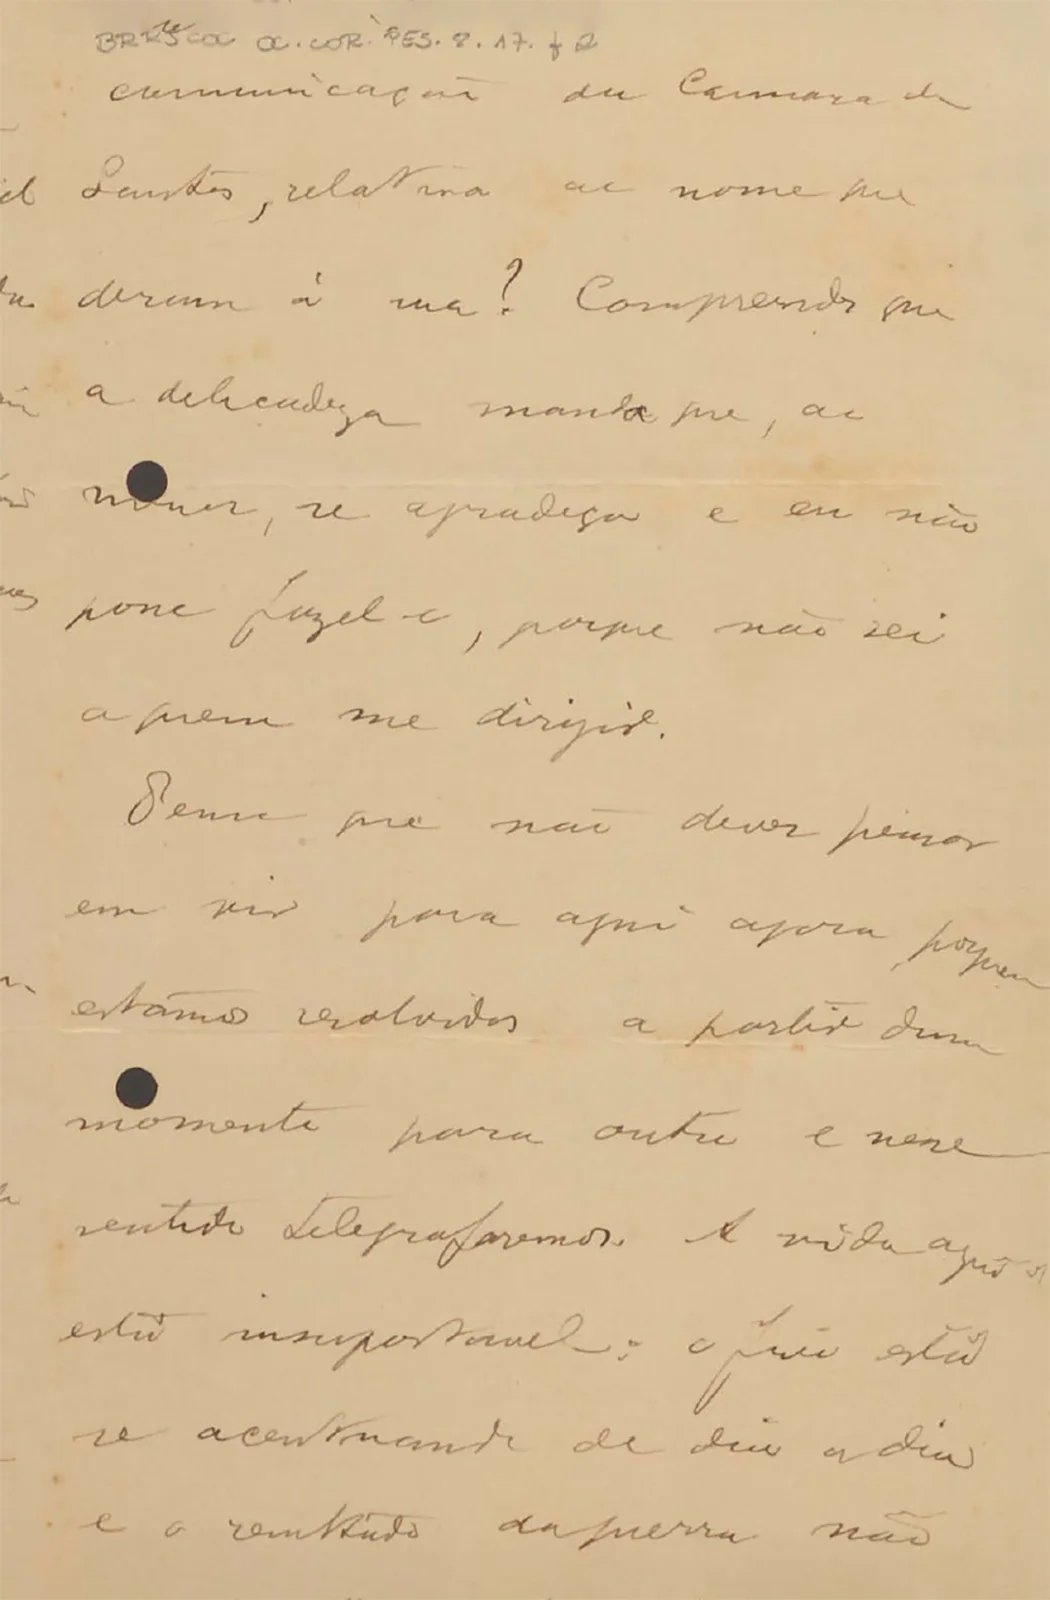 comunicação da Camara de
Santos, relativa ao nome que
deram á rua? Comprendo que
a delicadeza manda que, ao
menos, se agradeça e eu não
posso fazel-o, porque não sei
a quem me dirigir.
Penso que não deves pensar
em vir para aqui agora, porque
estamos resolvidos a partir dum
momento para outro e nesse
sentido telegrafaremos. A vida aqui
está insuportavel: o frio está
se acentuando de dia a dia
e o resultado da guerra não